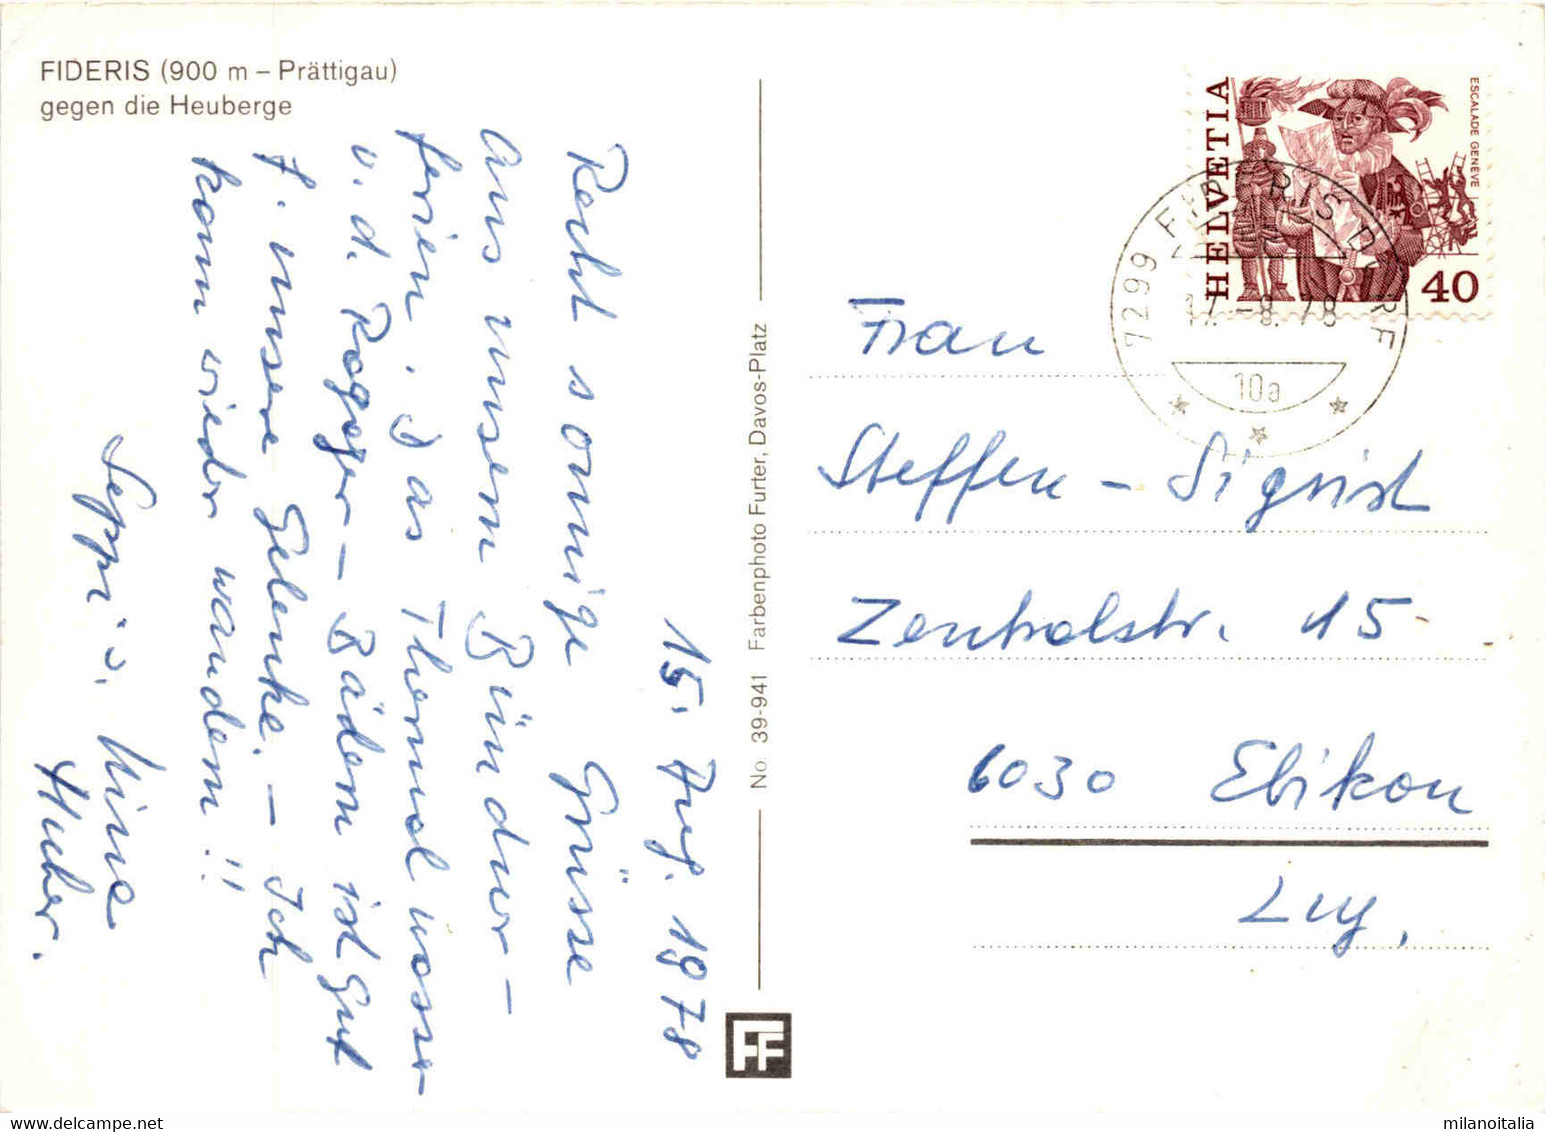 FIDERIS (900 m – Prättigau)
gegen die Heuberge
15. Aug. 1978
Recht sonnige Grüsse
aus unsern Bündner-
ferien. Das Thermalwasser
v. d. Ragazer-Bädern ist gut
f. unsere Gelenke. – Ich
kann wieder wandern!!
Seppi u. Nina
Huber.
No. 39-941 Farbenphoto Furter, Davos-Platz
FF
HELVETIA
ESCALADE GENÈVE
40
7299 FIDERIS DORF
17.-8.78
10a
Frau
Steffen-Sigrist
Zentralstr. 15
6030 Ebikon
Luz,
milanoitalia